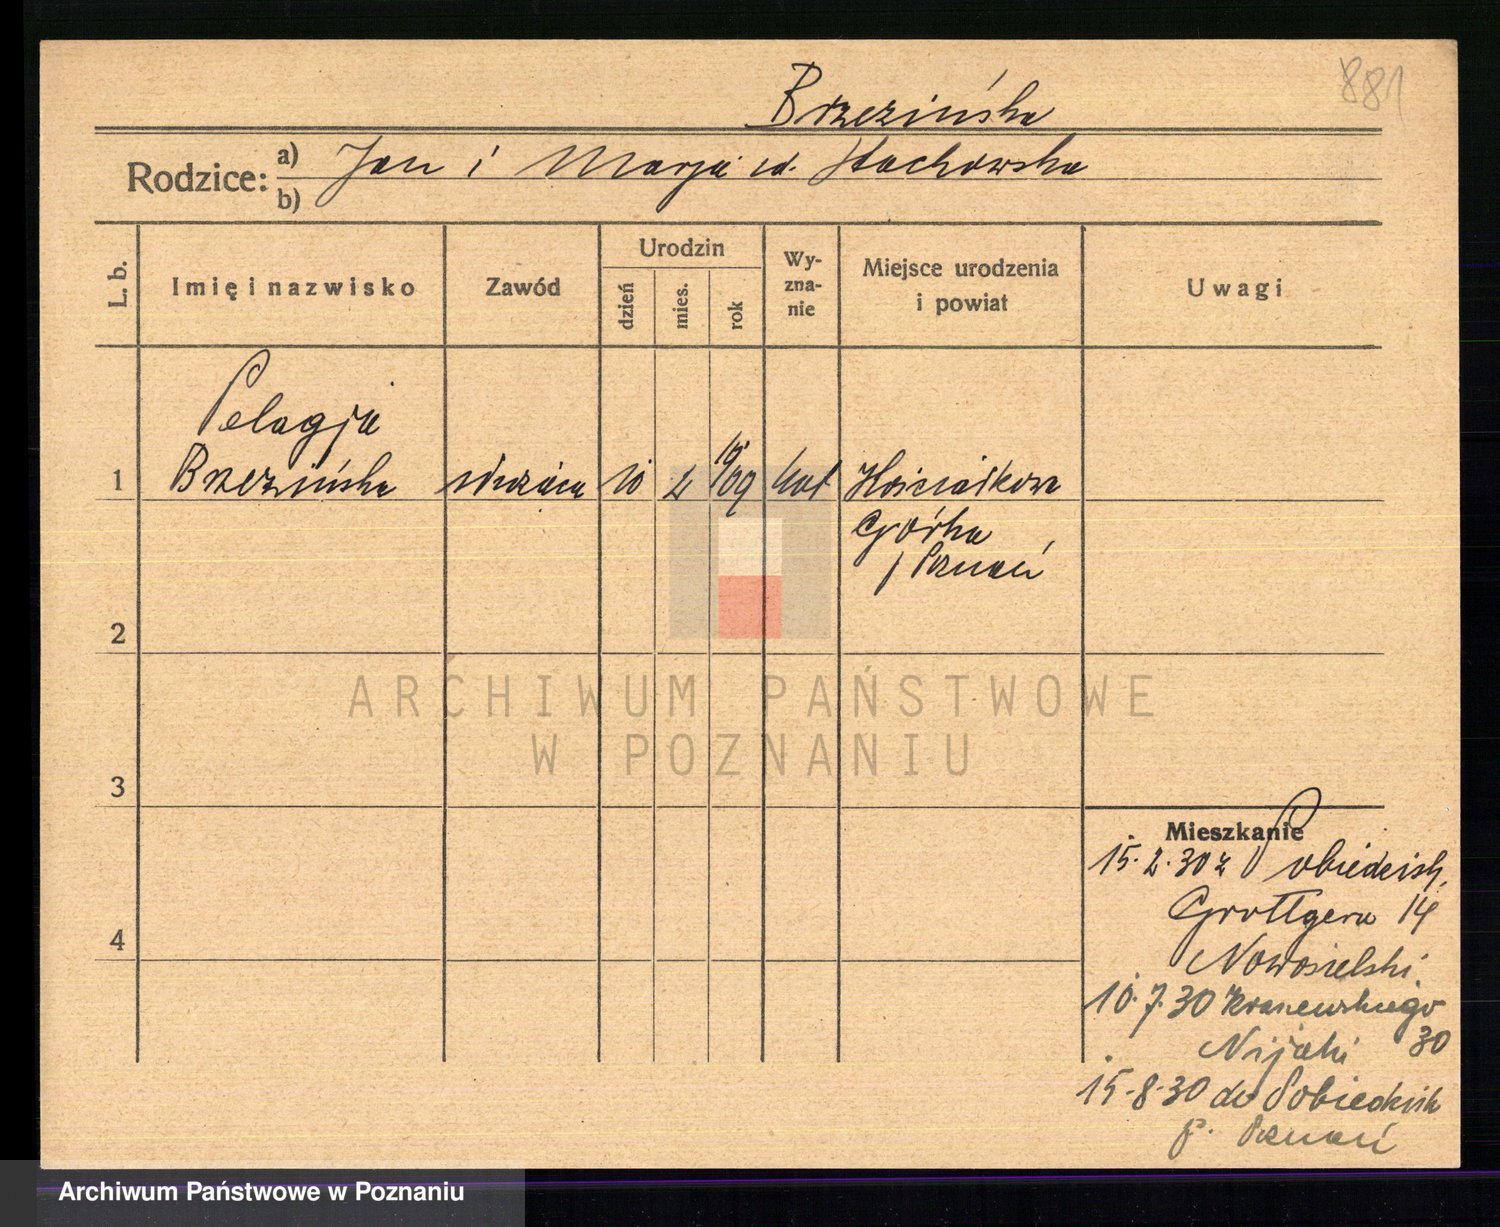 881
Brzezińska
Rodzice: a) Jan i Marja zd. Stachowska
b)
L. b.
Imię i nazwisko
Zawód
Urodzin
dzień
mies.
rok
Wy-
zna-
nie
Miejsce urodzenia
i powiat
Uwagi
Pelagja
1 Brzezińska służąca 10 2 19/09 kat Kościałkowa
Górka
p Poznań
2
3
4
ARCHIWUM PAŃSTWOWE
W POZNANIU
Mieszkanie
15.2.30 z Pobiedzisk,
Grottgera 14
Nowosielski
10.7.30 Kraszewskiego
Nijaki 30
15.8.30 do Pobiedzisk
p. Poznań
Archiwum Państwowe w Poznaniu